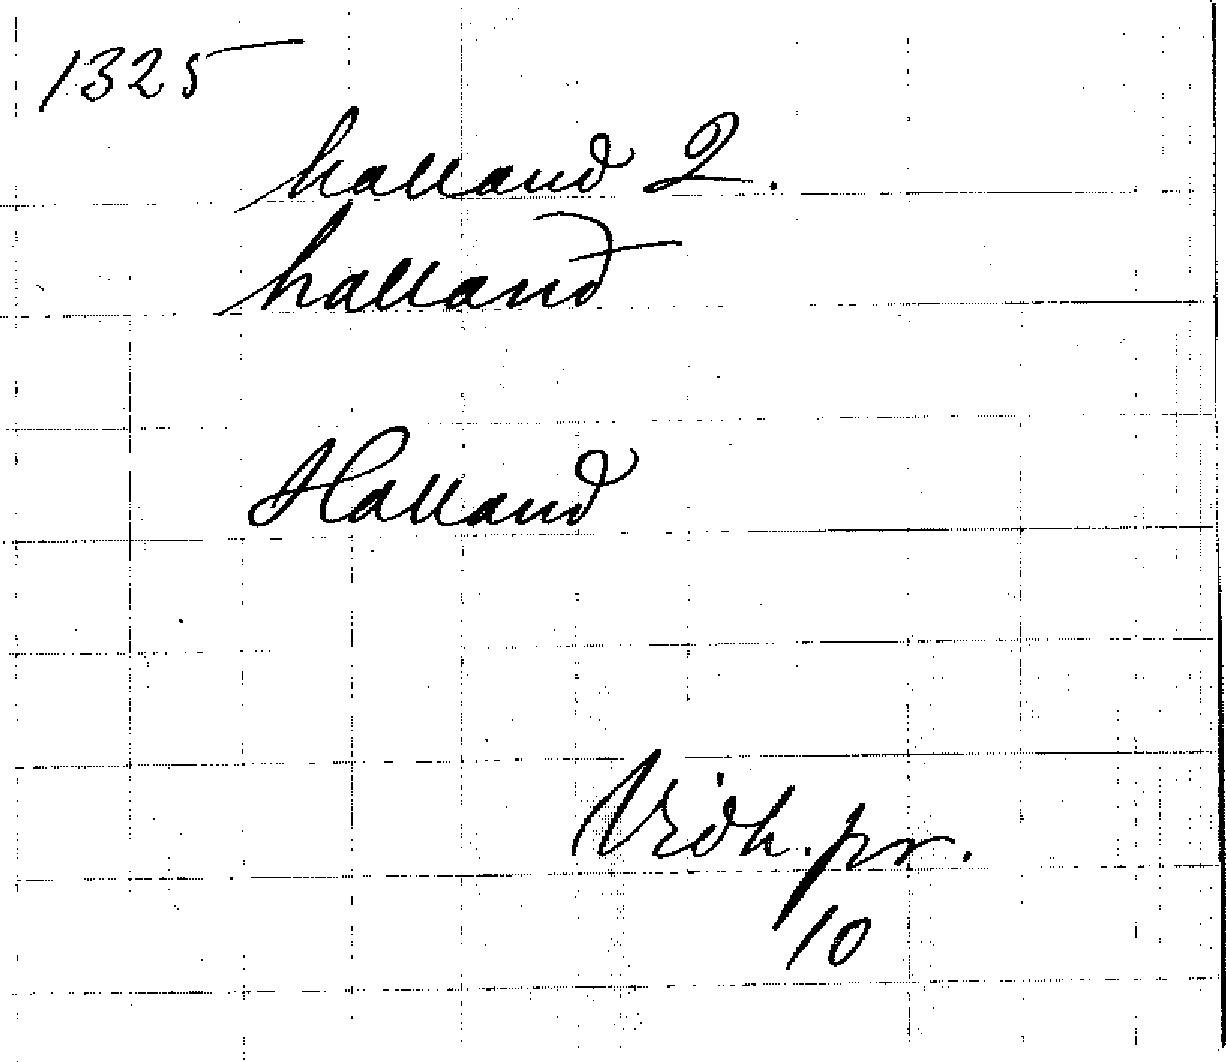 1325
halland 2.
halland
Halland
Vidk. pr.
10